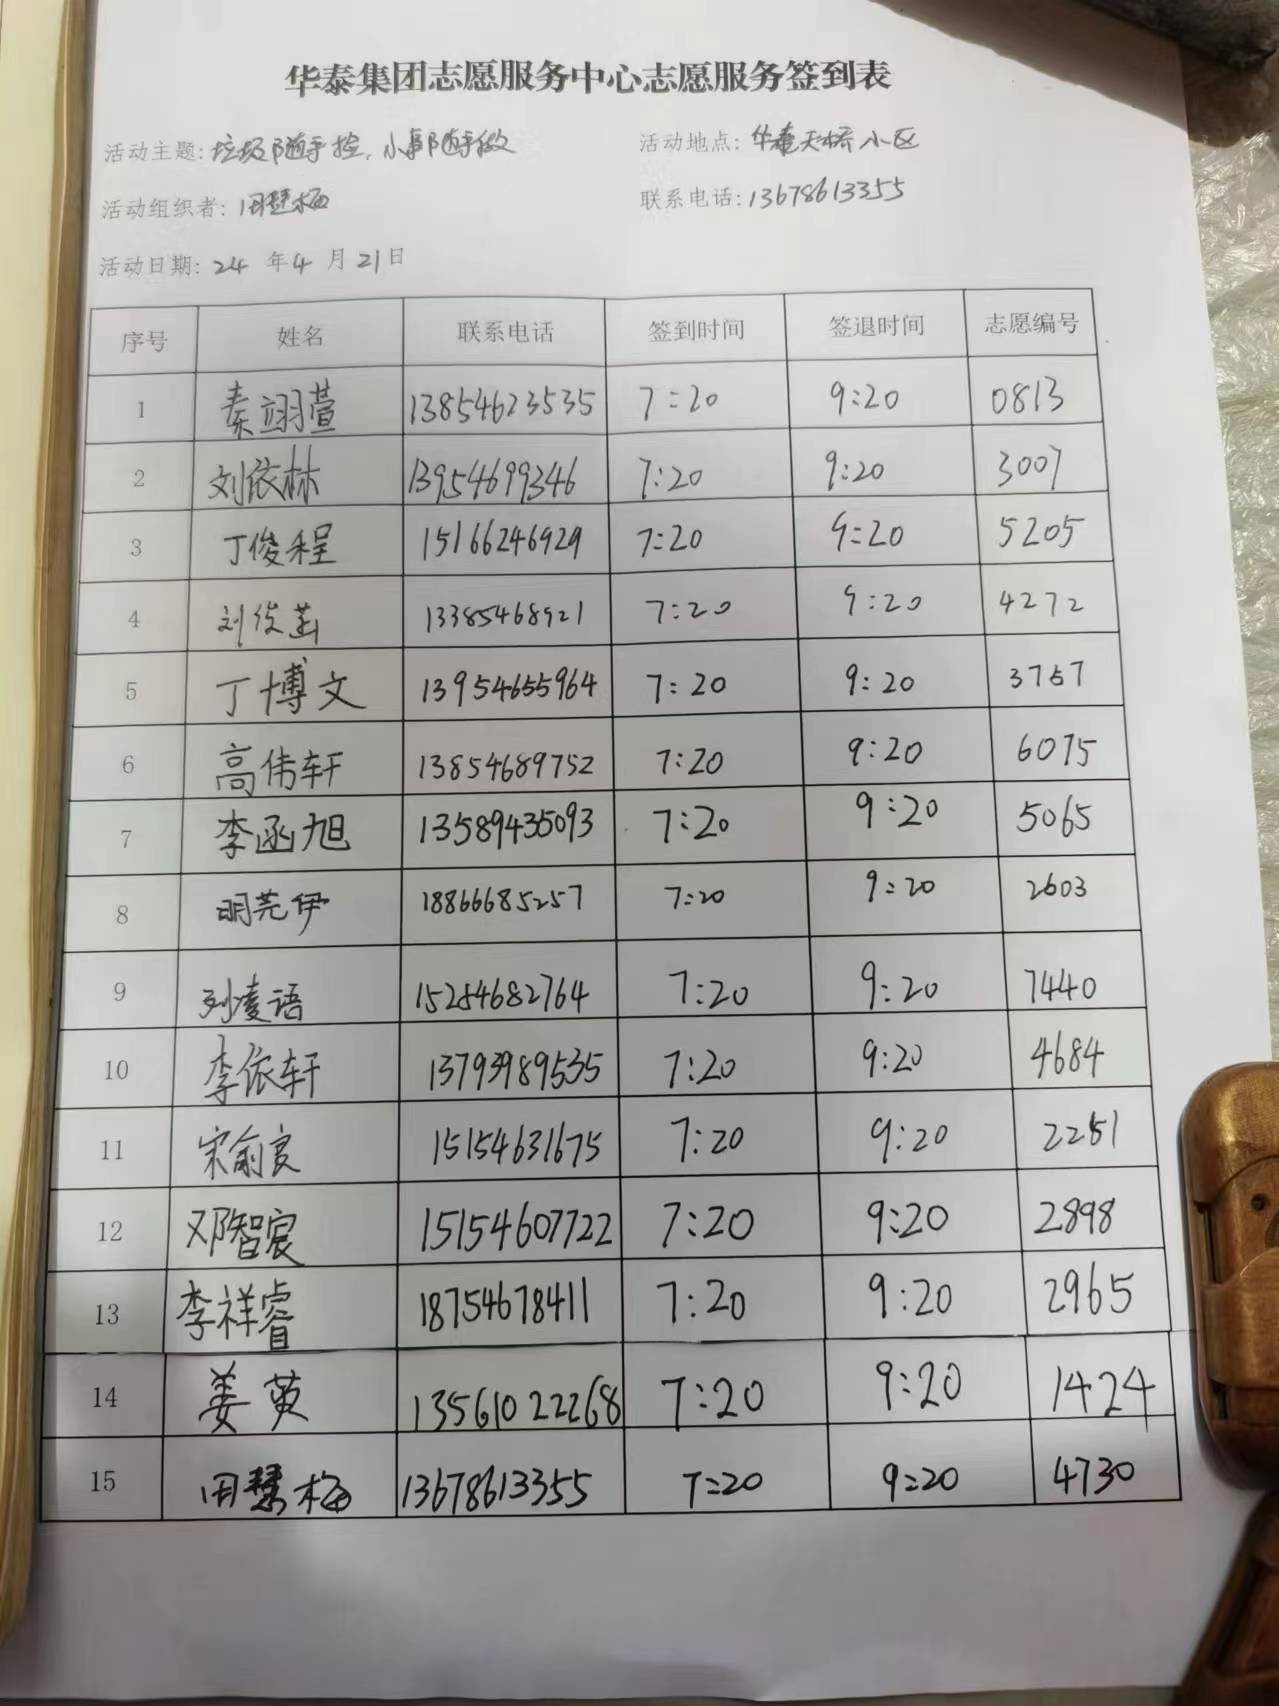 华泰集团志愿服务中心志愿服务签到表
活动主题:垃圾随手捡,小事随手做 活动地点:华泰天桥小区
活动组织者:田慧梅 联系电话:13678613355
活动日期:24年4月21日
序号 姓名 联系电话 签到时间 签退时间 志愿编号
1 秦翊萱 13854623535 7:20 9:20 0813
2 刘依林 13954699346 7:20 9:20 3007
3 丁俊程 15166246929 7:20 9:20 5205
4 刘俊菡 13385468921 7:20 9:20 4272
5 丁博文 13954655964 7:20 9:20 3757
6 高伟轩 13854689752 7:20 9:20 6075
7 李函旭 13589435093 7:20 9:20 5065
8 明芫伊 18866685257 7:20 9:20 2603
9 刘凌语 15254682764 7:20 9:20 7440
10 李依轩 13793989535 7:20 9:20 4684
11 宋俞良 15154631675 7:20 9:20 2251
12 邓智宸 15154607722 7:20 9:20 2898
13 李祥睿 18754678411 7:20 9:20 2965
14 姜英 13561022268 7:20 9:20 1424
15 田慧梅 13678613355 7:20 9:20 4730